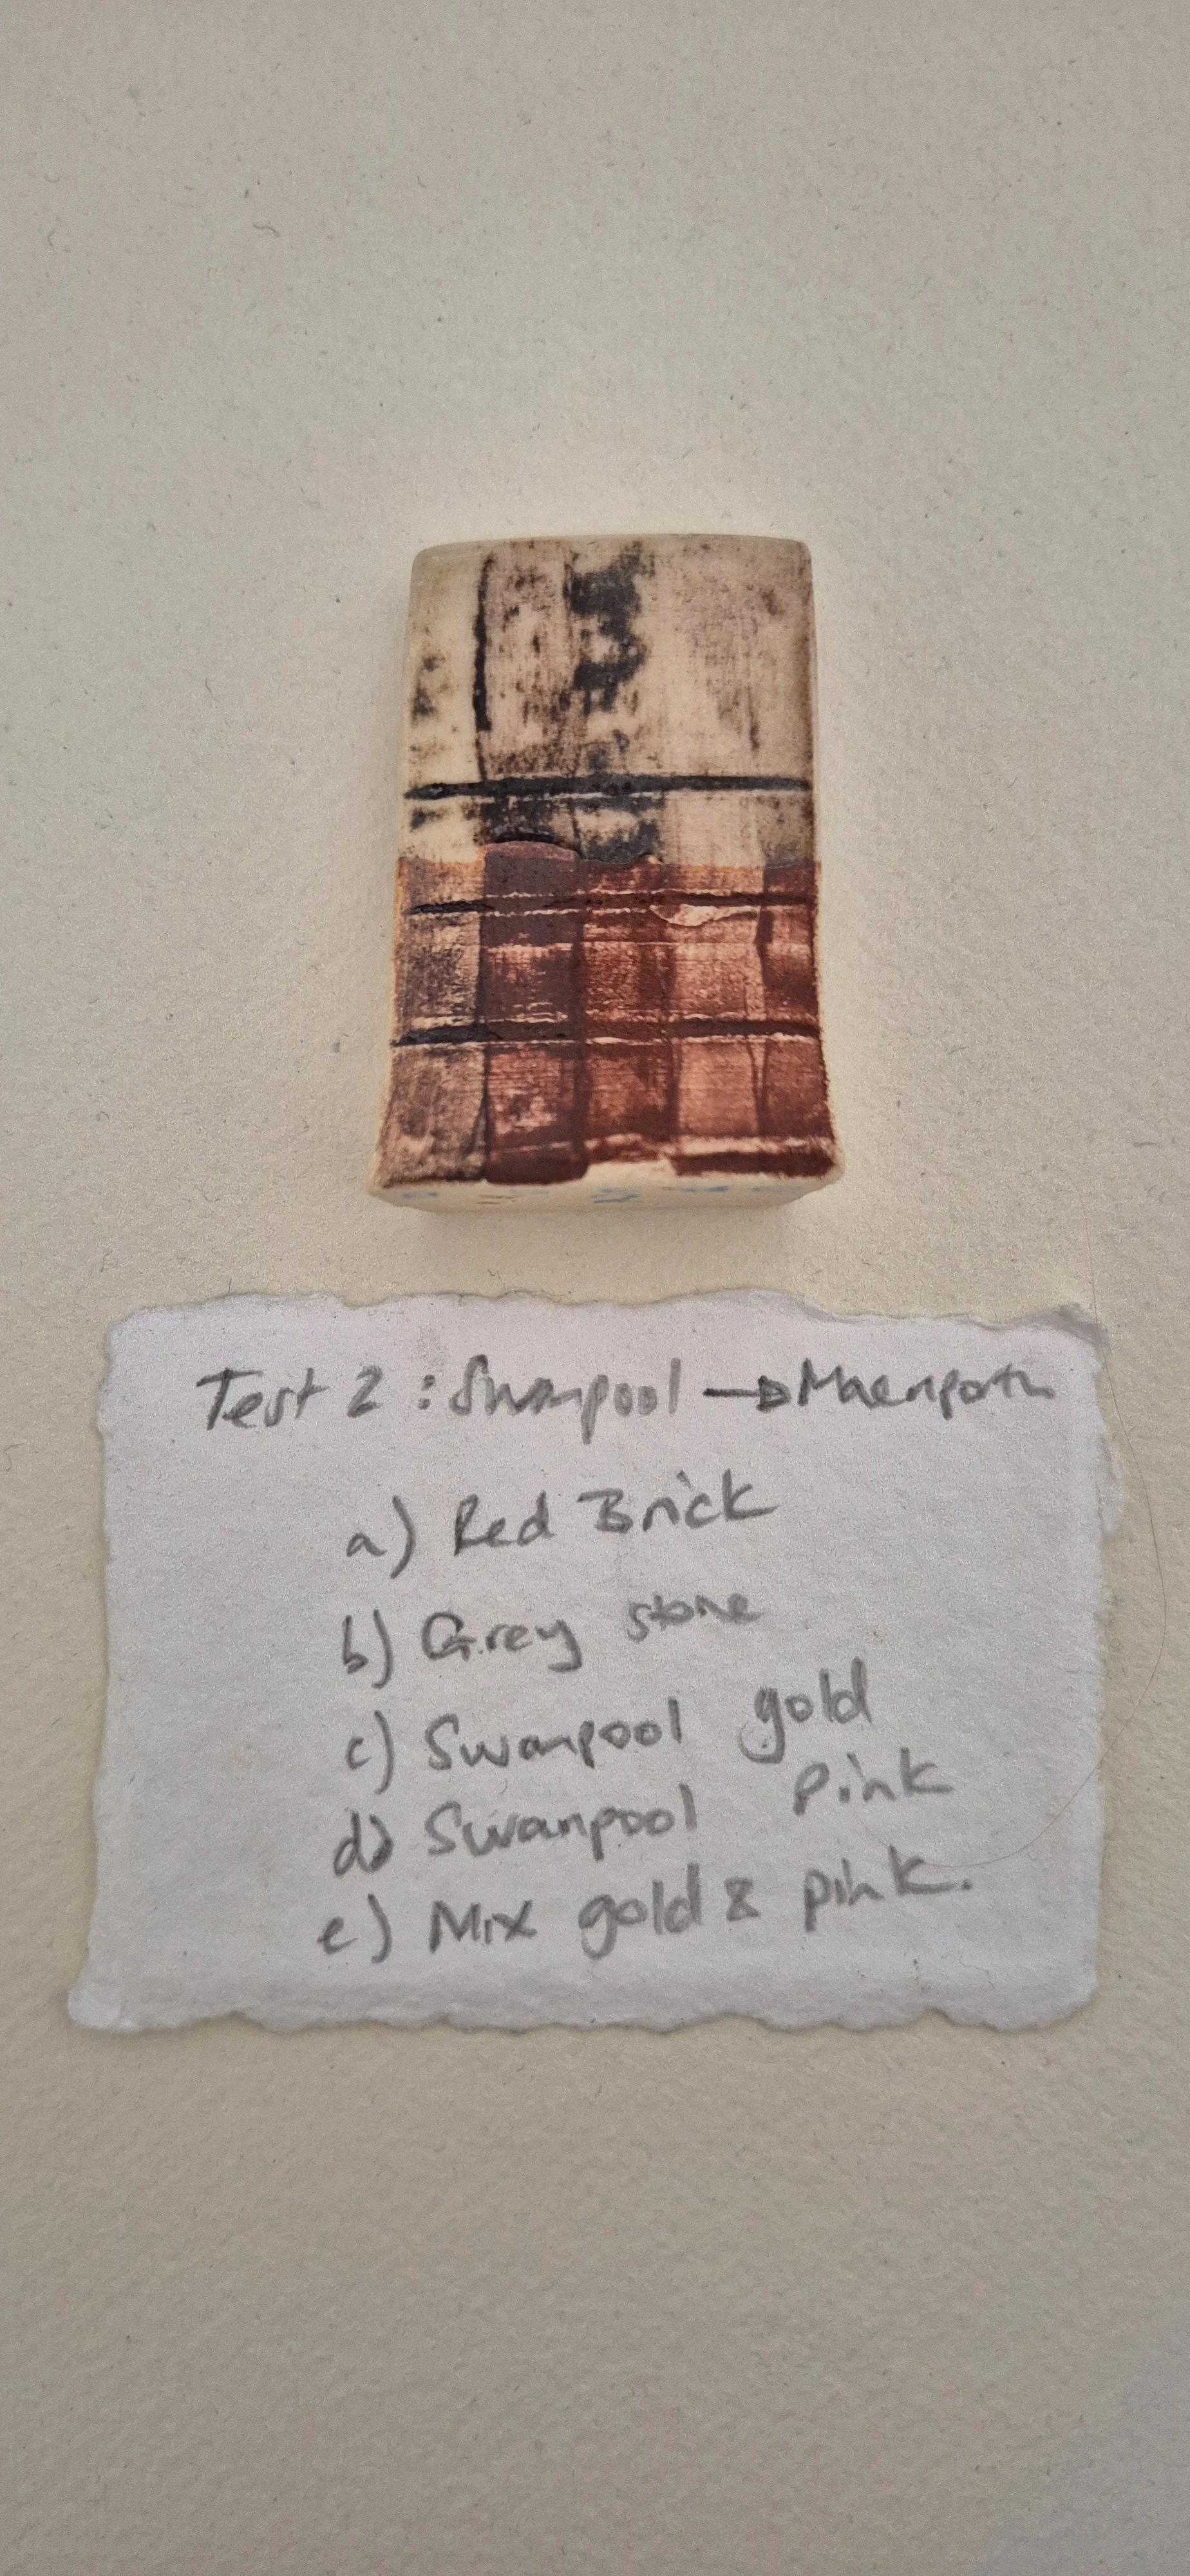 Test 2 : Swanpool → Maenporth
a) Red Brick
b) Grey stone
c) Swanpool gold
d) Swanpool pink
e) Mix gold & pink.